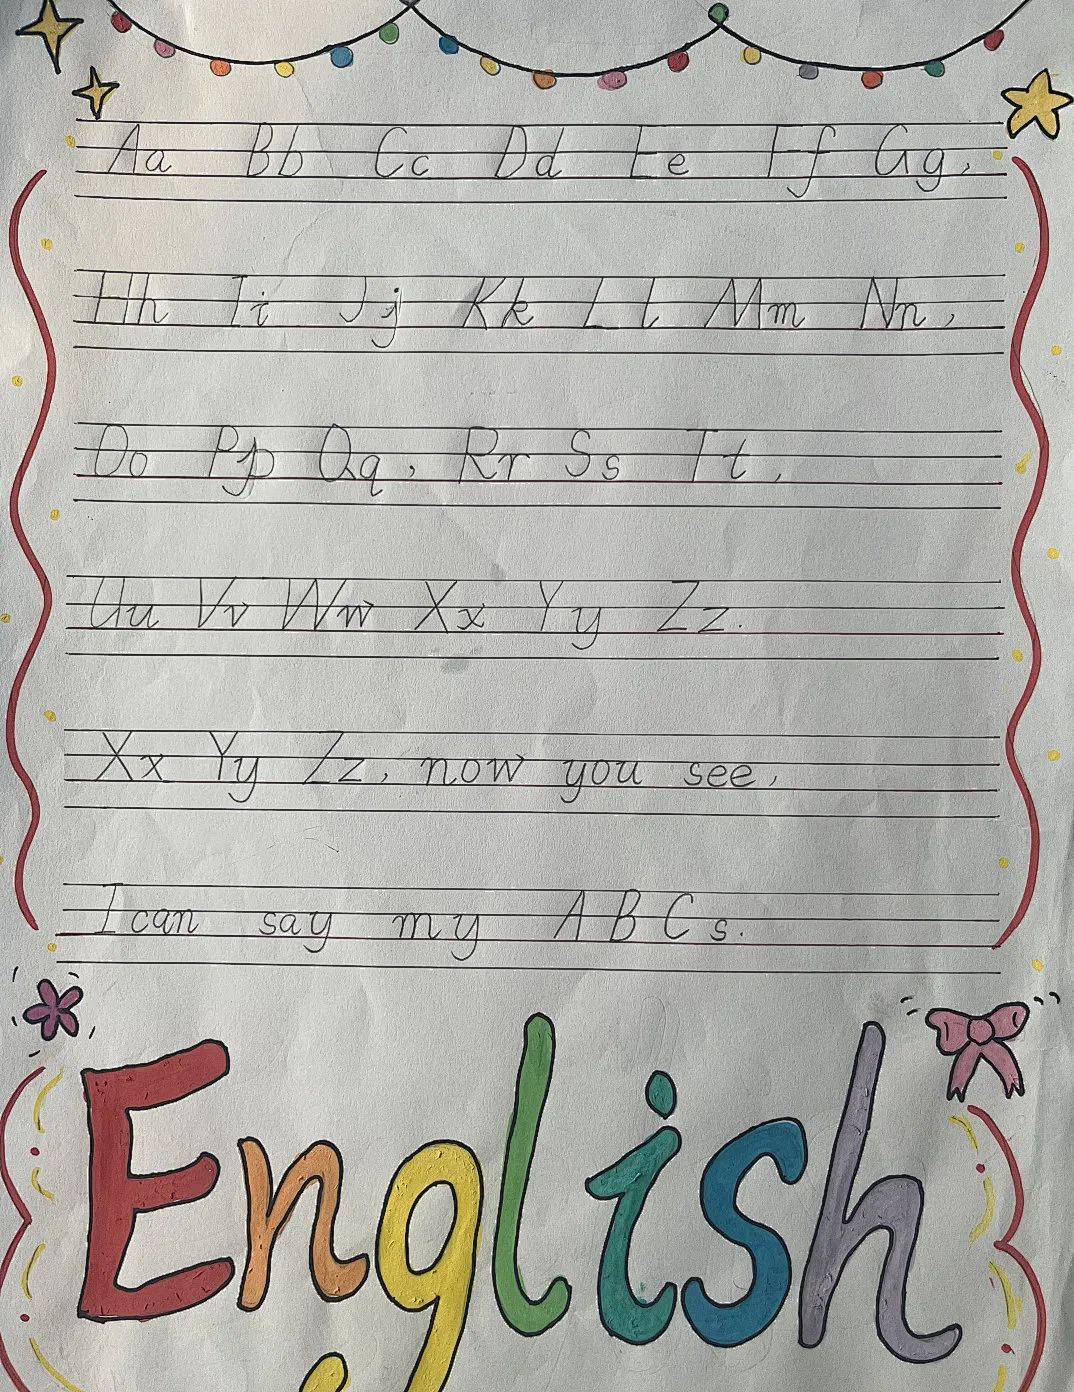 Aa Bb Cc Dd Ee Ff Gg,
Hh Ii Jj Kk Ll Mm Nn,
Oo Pp Qq, Rr Ss Tt,
Uu Vv Ww Xx Yy Zz.
Xx Yy Zz, now you see,
I can say my ABCs.
English